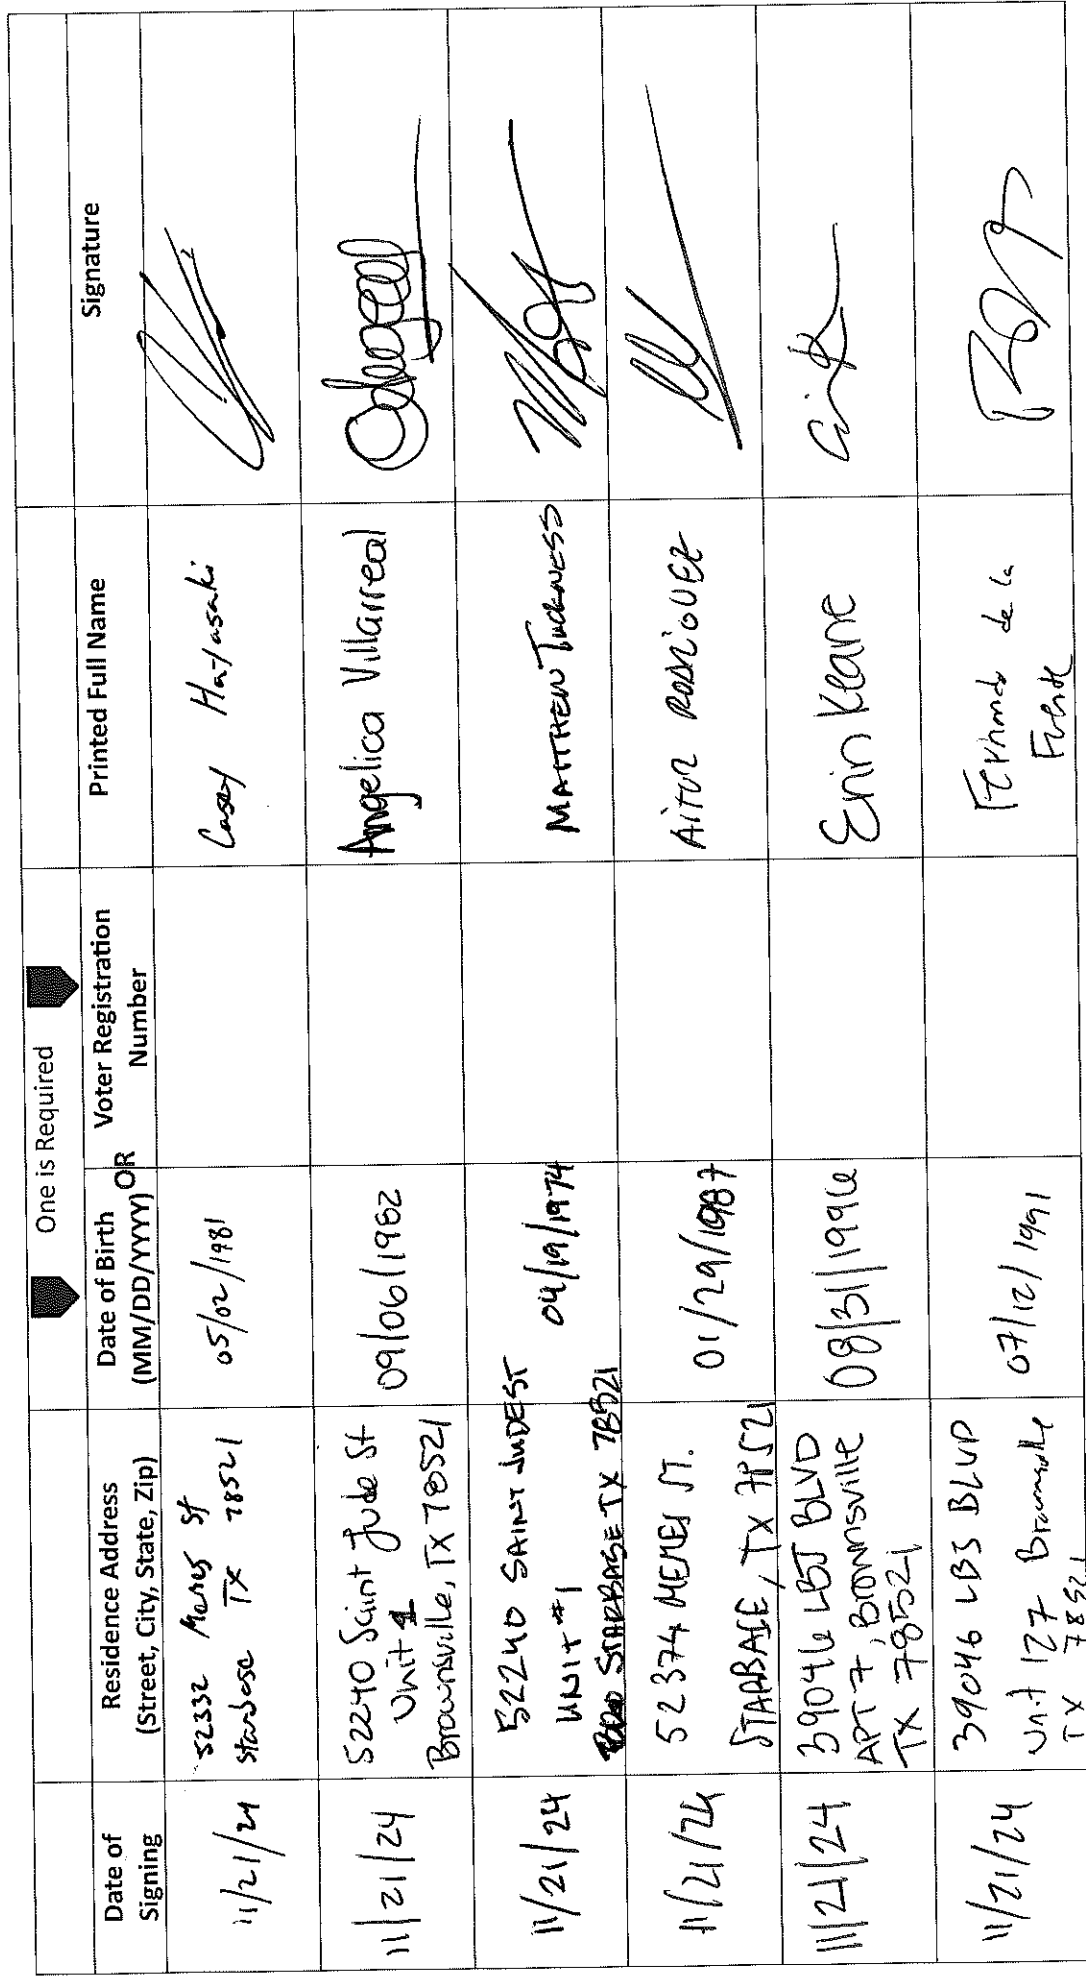 One is Required
Date of
Signing
Residence Address
(Street, City, State, Zip)
Date of Birth
(MM/DD/YYYY) OR
Voter Registration
Number
Printed Full Name
Signature
11/21/24
52332 St
Starbase TX 78521
05/02/1981
Casey Hayasaki
11/21/24
52240 Saint Jude St
Unit 1
Brownsville, TX 78521
09/06/1982
Angelica Villarreal
11/21/24
52240 SAINT JUDE ST
UNIT #1
STARBASE TX 78521
04/19/1974
MATTHEW Thickness
11/21/24
52374 MEMES ST.
STARBASE, TX 78521
01/29/1987
AITOR RODRIGUEZ
11/21/24
39046 LBJ BLVD
APT 7, Brownsville
TX 78521
08/31/1996
Erin Keane
11/21/24
39046 LBJ BLVD
Unit 127 Brownsville
TX 78521
07/12/1991
Fernando de la
Fuente